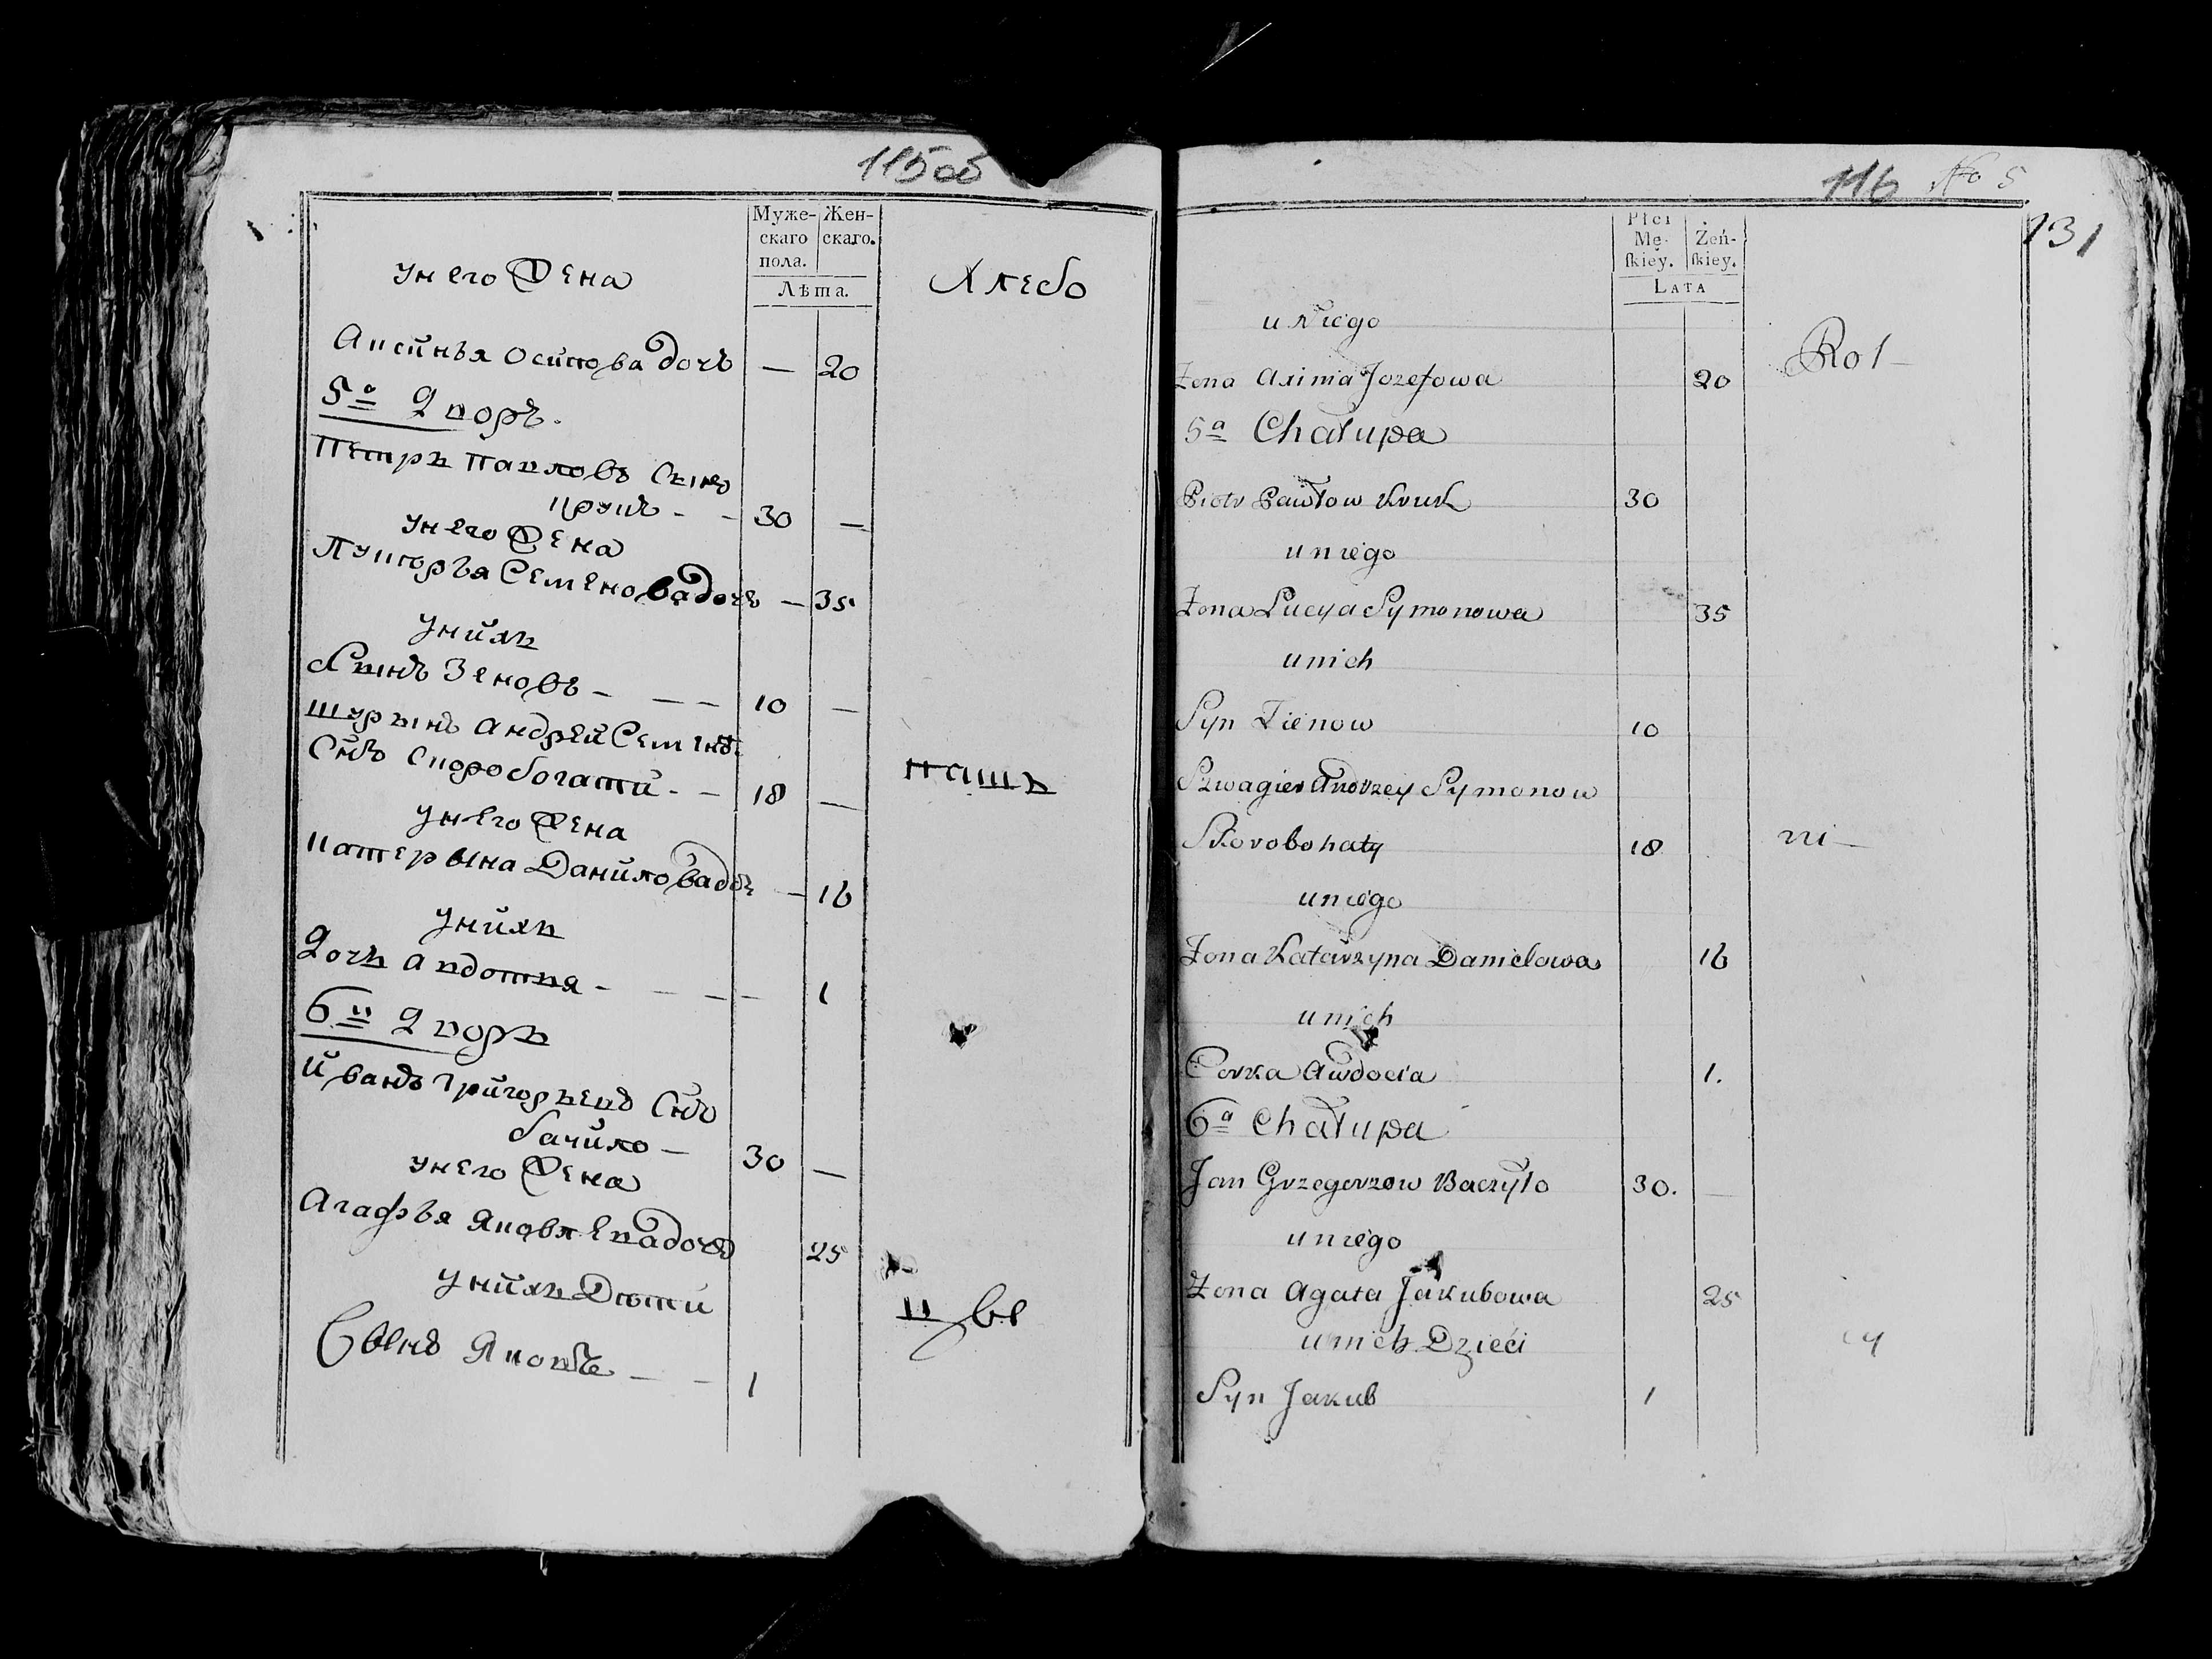 115об
Муже-
скаго
пола.
Жен-
скаго.
Лѣта.
у него Жена
Хлебо
Аксинья Осипова дочь — 20
5й Дворъ.
Петръ Павловъ Сынъ
Крукъ - - 30 —
у него Жена
Лукгорья Семенова дочь — 35
у нихъ
Сынъ Зеновъ - — — 10 —
Шурынъ Андрей Семенвъ
Снъ Скоробогатй - - 18 —
пашъ
у него Жена
Катерына Данилова доч — 16
у нихъ
Дочь Авдотья - - — — 1
6й Дворъ
Иванъ Григорьевъ Снъ
бачило — 30 —
у него Жена
Агафья Яковлева дочъ 25
у нихъ Дѣти
цы
Сынъ Яковъ — - 1
116 No 5
131
Płci
Mę-
ſkiey.
Żeń-
ſkiey.
LATA
u Niego
Rol-
Żona Axinia Jozefowa 20
5a Chałupa
Piotr Pawłow Kruk 30
u niego
Żona Lucya Symonowa 35
u nich
Syn Zienow 10
Szwagier Andrzey Symonow
Skorobohaty 18
ni-
u niego
Żona Katarzyna Danielowa 16
u nich
Corka Awdocia 1.
6a Chałupa
Jan Grzegorzow Baczyło 30. —
u niego
Żona Agata Jakubowa 25
u nich Dzieci
cy
Syn Jakub 1